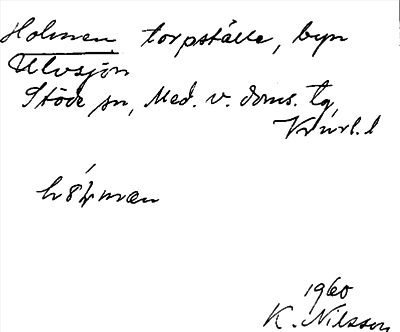 Holmen torpställe, byn
Ulvsjön
Stöde sn, Med. v. doms. tg,
Vnrl. l
1960
K. Nilsson